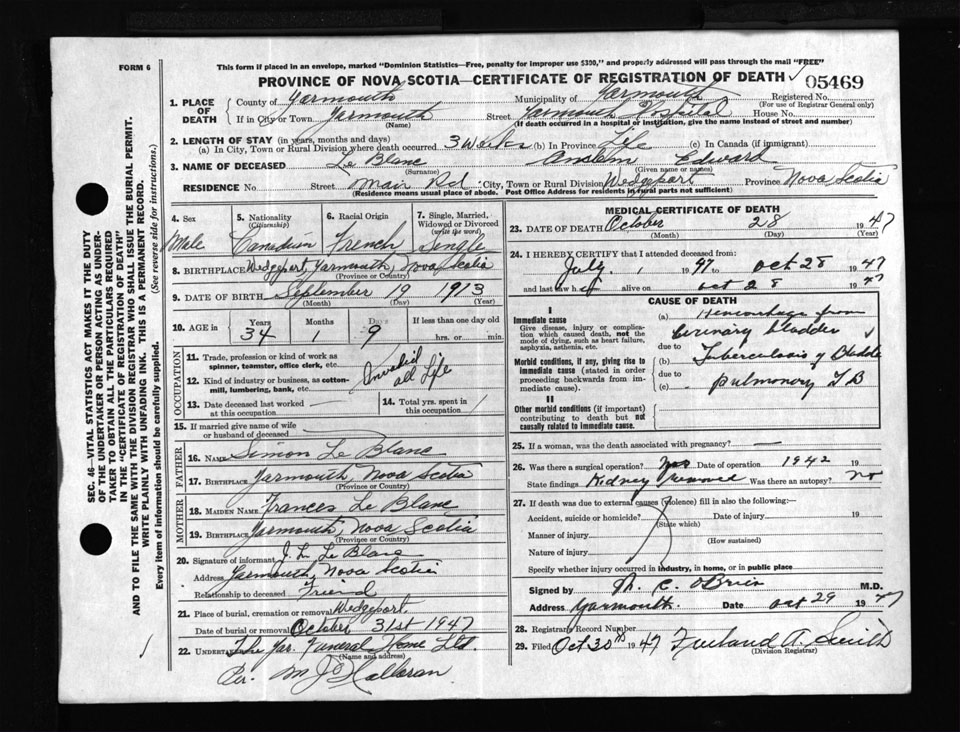 FORM 6
This form if placed in an envelope, marked "Dominion Statistics—Free, penalty for improper use $300," and properly addressed will pass through the mail "FREE"
PROVINCE OF NOVA SCOTIA—CERTIFICATE OF REGISTRATION OF DEATH
05469
1. PLACE OF DEATH
County of Yarmouth Municipality of Yarmouth Registered No.
(For use of Registrar General only)
If in City or Town Yarmouth Street Hospital House No.
(Name) (If death occurred in a hospital or institution, give the name instead of street and number)
2. LENGTH OF STAY (in years, months and days)
(a) In City, Town or Rural Division where death occurred 3 weeks (b) In Province Life (c) In Canada (if immigrant)
3. NAME OF DECEASED Le Blanc Anslem Edward
(Surname) (Given name or names)
RESIDENCE No Street Main Rd City, Town or Rural Division Wedgeport Province Nova Scotia
(Residence means usual place of abode. Post Office Address for residents in rural parts not sufficient)
4. Sex
Male
5. Nationality
(Citizenship)
Canadian
6. Racial Origin
French
7. Single, Married, Widowed or Divorced
(write the word)
Single
8. BIRTHPLACE Wedgeport, Yarmouth, Nova Scotia
(Province or Country)
9. DATE OF BIRTH September 19 1913
(Month) (Day) (Year)
10. AGE in Years Months Days If less than one day old
34 1 9 hrs. or min.
OCCUPATION
11. Trade, profession or kind of work as spinner, teamster, office clerk, etc.
12. Kind of industry or business, as cotton-mill, lumbering, bank, etc.
Invalid all Life
13. Date deceased last worked at this occupation
14. Total yrs. spent in this occupation
15. If married give name of wife or husband of deceased
FATHER
16. Name Simon Le Blanc
17. Birthplace Yarmouth, Nova Scotia
(Province or Country)
MOTHER
18. MAIDEN NAME Frances Le Blanc
19. Birthplace Yarmouth, Nova Scotia
(Province or Country)
20. Signature of informant Le Blanc
Address Yarmouth, Nova Scotia
Relationship to deceased Friend
21. Place of burial, cremation or removal Wedgeport
Date of burial or removal October 31st 1947
22. UNDERTAKER The Yar. Funeral Home Ltd.
(Name and address)
Per. M J O'Halloran
MEDICAL CERTIFICATE OF DEATH
23. DATE OF DEATH October 28 1947
(Month) (Day) (Year)
24. I HEREBY CERTIFY that I attended deceased from:
July 1947 to Oct 28 1947
and last saw h alive on Oct 28 1947
CAUSE OF DEATH
I
Immediate cause
Give disease, injury or complication which caused death, not the mode of dying, such as heart failure, asphyxia, asthenia, etc.
Morbid conditions, if any, giving rise to immediate cause (stated in order proceeding backwards from immediate cause).
II
Other morbid conditions (if important) contributing to death but not causally related to immediate cause.
(a) Hemorrhage from
bladder
due to
(b) Tuberculosis of Bladder
due to
(c) Pulmonary T B
25. If a woman, was the death associated with pregnancy? —
26. Was there a surgical operation? Yes Date of operation 1942 19
State findings Kidney Was there an autopsy? No
27. If death was due to external causes (violence) fill in also the following:—
Accident, suicide or homicide? Date of injury 19
(State which)
Manner of injury
(How sustained)
Nature of injury
Specify whether injury occurred in industry, in home, or in public place
Signed by C. O'Brien M.D.
Address Yarmouth. Date Oct 29 1947
28. Registrar's Record Number
29. Filed Oct 30th 1947 A. Smith
(Division Registrar)
SEC. 46—VITAL STATISTICS ACT MAKES IT THE DUTY OF THE UNDERTAKER OR PERSON ACTING AS UNDERTAKER TO OBTAIN ALL THE PARTICULARS REQUIRED IN THE "CERTIFICATE OF REGISTRATION OF DEATH" AND TO FILE THE SAME WITH THE DIVISION REGISTRAR WHO SHALL ISSUE THE BURIAL PERMIT.
WRITE PLAINLY WITH UNFADING INK. THIS IS A PERMANENT RECORD.
Every item of information should be carefully supplied. (See reverse side for instructions.)